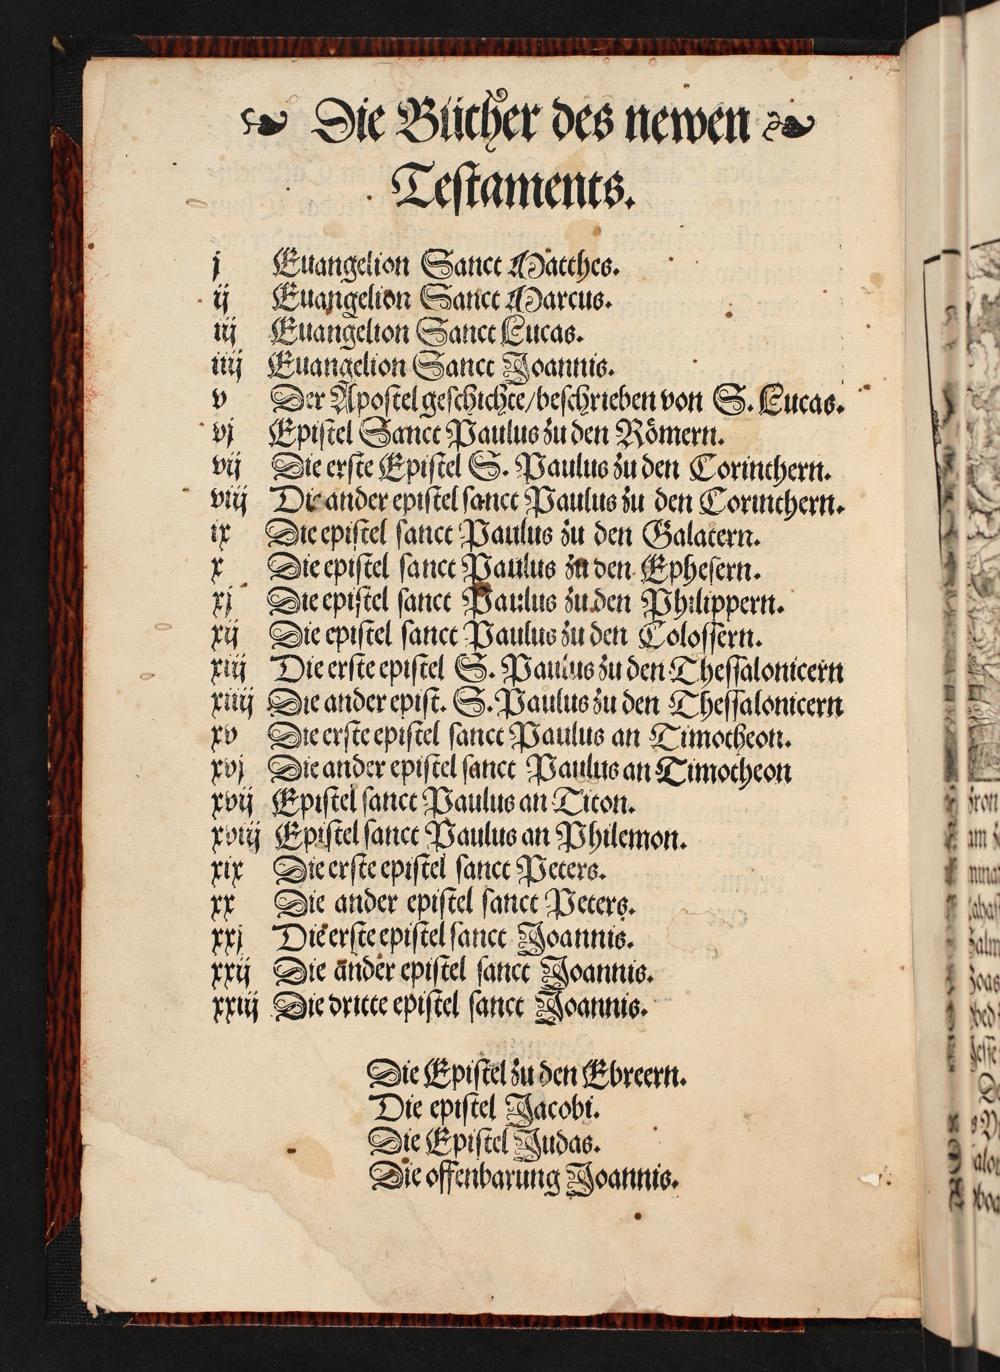 Die Bücher des newen
Testaments.
j Euangelion Sanct Matthes.
ij Euangelion Sanct Marcus.
iij Euangelion Sanct Lucas.
iiij Euangelion Sanct Joannis.
v Der Apostel geschichte/beschrieben von S. Lucas.
vj Epistel Sanct Paulus zu den Römern.
vij Die erste Epistel S. Paulus zu den Corinthern.
viij Die ander epistel sanct Paulus zu den Corinthern.
ix Die epistel sanct Paulus zu den Galatern.
x Die epistel sanct Paulus zu den Ephesern.
xj Die epistel sanct Paulus zu den Philippern.
xij Die epistel sanct Paulus zu den Colossern.
xiij Die erste epistel S. Paulus zu den Thessalonicern
xiiij Die ander epist. S. Paulus zu den Thessalonicern
xv Die erste epistel sanct Paulus an Timotheon.
xvj Die ander epistel sanct Paulus an Timotheon
xvij Epistel sanct Paulus an Titon.
xviij Epistel sanct Paulus an Philemon.
xix Die erste epistel sanct Peters.
xx Die ander epistel sanct Peters.
xxj Die erste epistel sanct Joannis.
xxij Die ander epistel sanct Joannis.
xxiij Die dritte epistel sanct Joannis.
Die Epistel zu den Ebreern.
Die epistel Jacobi.
Die Epistel Judas.
Die offenbarung Joannis.